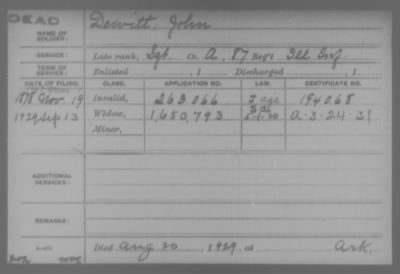 DEAD
NAME OF SOLDIER: Dewitt, John
SERVICE: Late rank, Sgt. Co. A, 87 Reg't Ill Inf
TERM OF SERVICE: Enlisted , 1 Discharged , 1
DATE OF FILING. CLASS. APPLICATION NO. LAW. CERTIFICATE NO.
1878 Nov. 19 Invalid, 263066 194068
1929 Sep 13 Widow, 1,650,793 A-3-24-31
Minor,
ADDITIONAL SERVICES:
REMARKS:
Died Aug 20, 1929, at Ark.